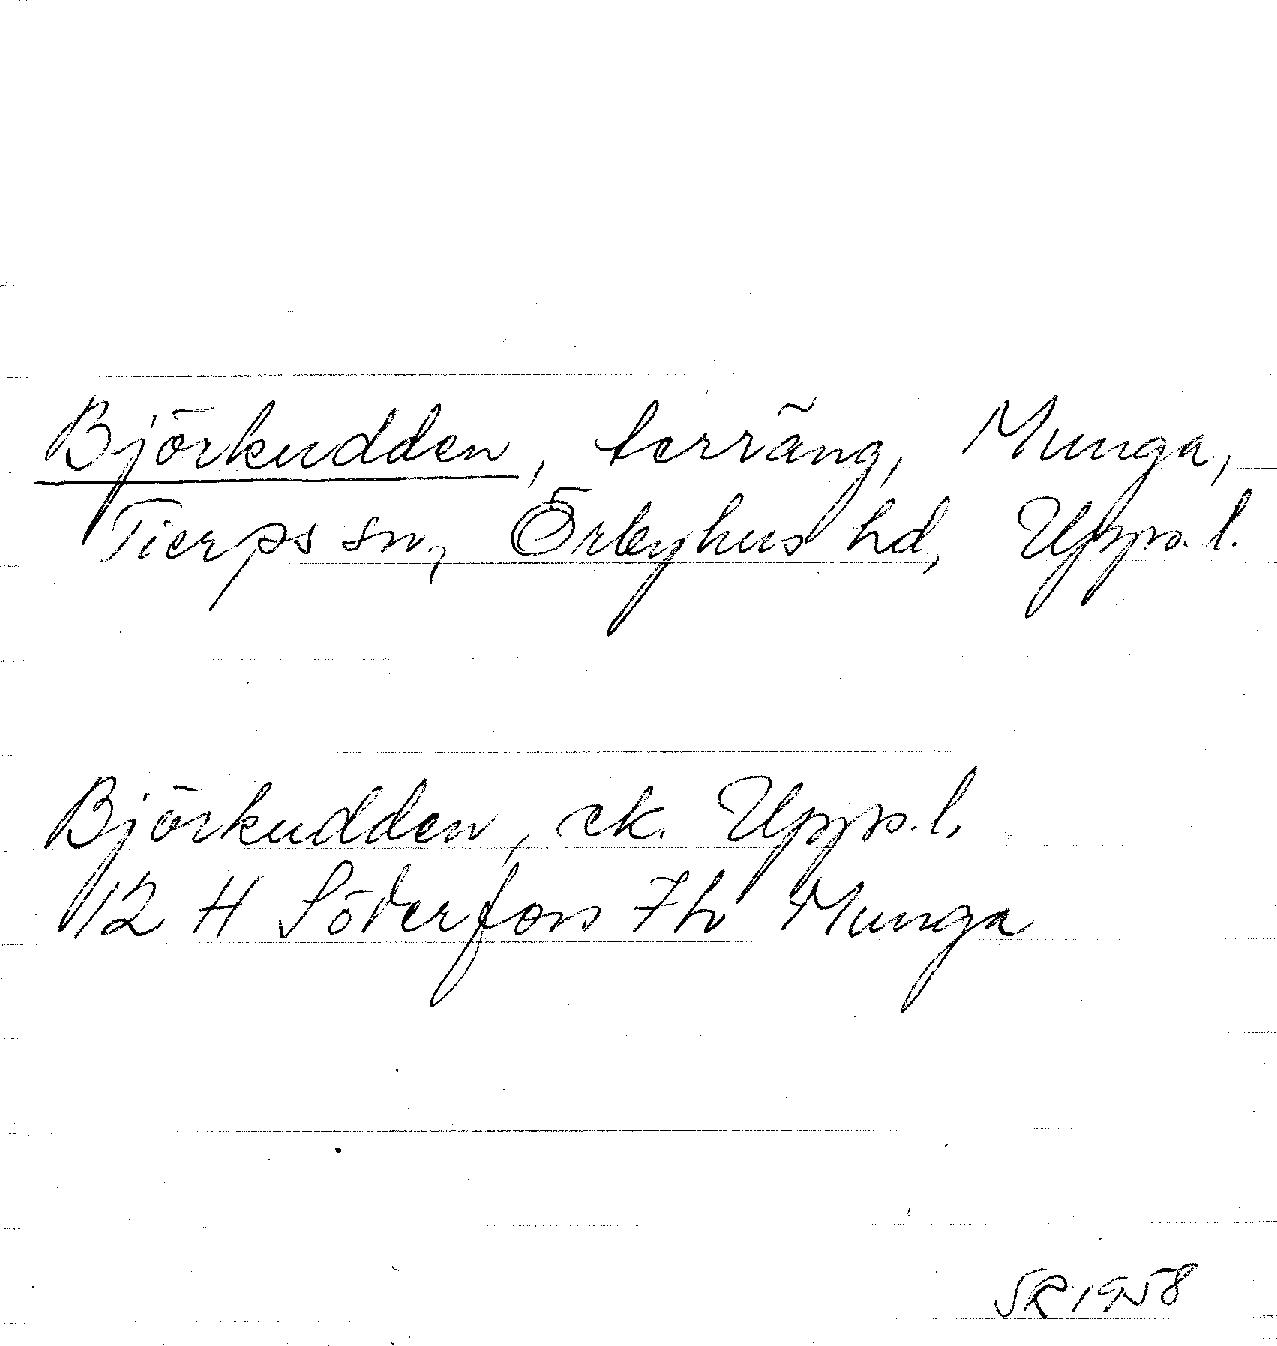 Björkudden, terräng, Munga,
Tierps sn, Örbyhus hd, Upps. l.
Björkudden, ek. Upps. l.
12 H Söderfors 7 h Munga
SR 1958